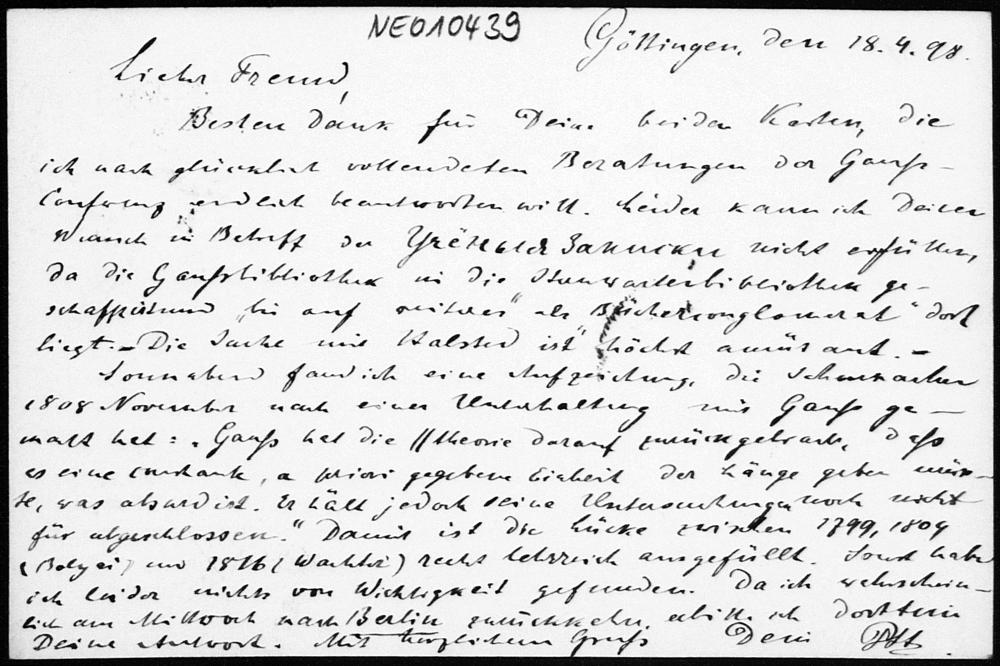 NE010439
Göttingen, den 18.4.98.
Lieber Freund,
Besten Dank für Deine beiden Karten, die
ich nach glücklich vollendeten Beratungen der Gauss-
Conferenz endlich beantworten will. Leider kann ich Deinen
Wunsch in Betreff der nicht erfüllen,
da die Gaussbibliothek in die Sternwartenbibliothek ge-
schafft ist und „bis auf weiteres" als „Bücherconglomerat" dort
liegt. – Die Sache mit Halsted ist höchst amüsant. –
Sonnabend fand ich eine Aufzeichnung, die Schumacher
1808 November nach einer Unterhaltung mit Gauss ge-
macht hat: „Gauss hat die //theorie darauf zurückgebracht, dass
es eine constante, a priori gegebene Einheit der Länge geben müss-
te, was absurd ist. Er hält jedoch seine Untersuchungen noch nicht
für abgeschlossen." Damit ist die Lücke zwischen 1799, 1804
(Bolyai) und 1816 (Wachter) recht lehrreich ausgefüllt. Sonst habe
ich leider nichts von Wichtigkeit gefunden. Da ich wahrschein-
lich am Mittwoch nach Berlin zurückkehre, erbitte ich dorthin
Deine Antwort. Mit herzlichem Gruss Dein